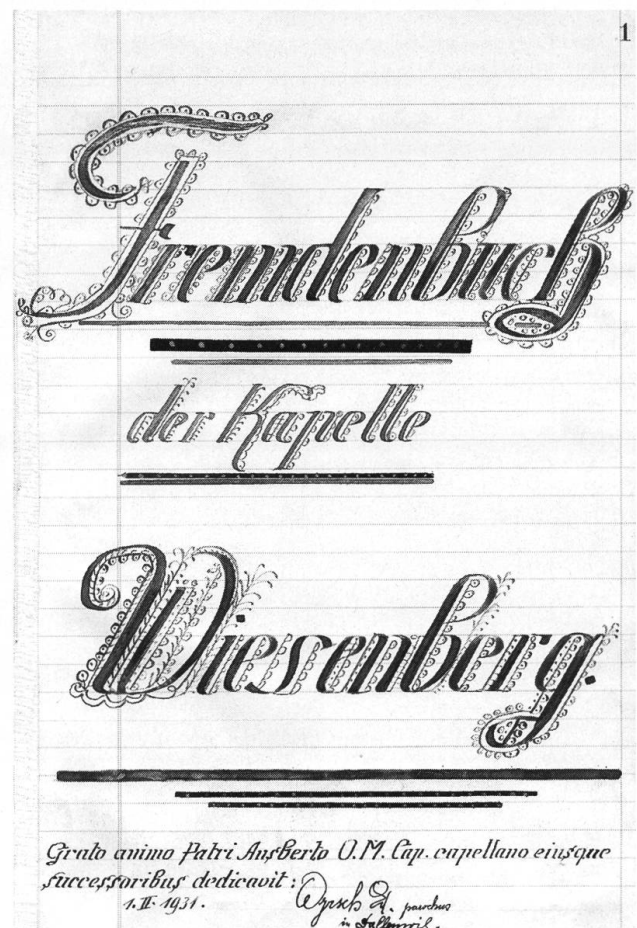 1
Fremdenbuch
der Kapelle
Wiesenberg.
Grato animo Patri Ansberto O.M. Cap. capellano eiusque
successoribus dedicavit:
1. II. 1931.
parochus
in Dallenwil.